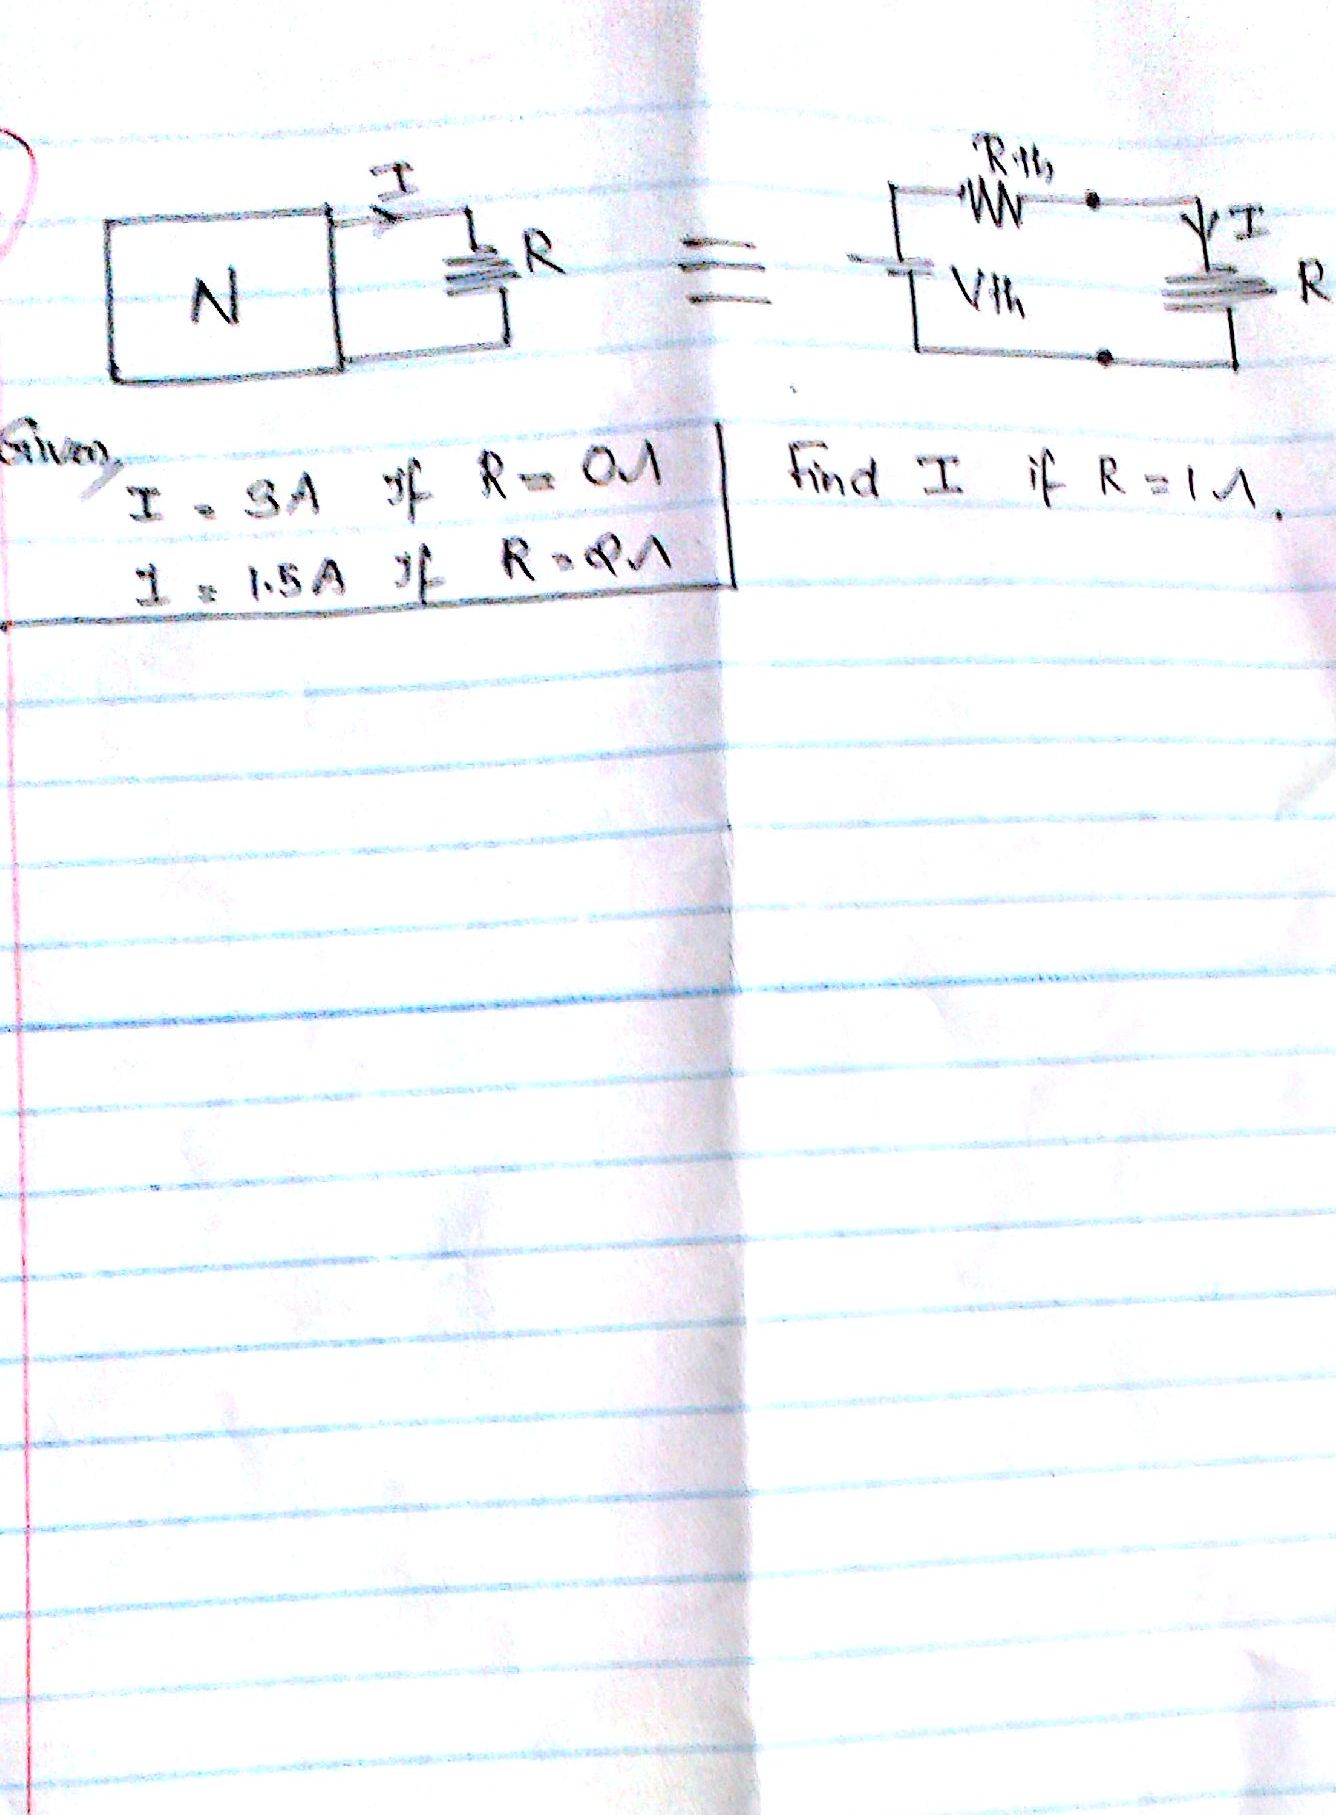 I
Rth
N
R
≡
Vth
I
R
Given,
I = 3A if R = 0Ω
I = 1.5A if R =
Find I if R = 1Ω.